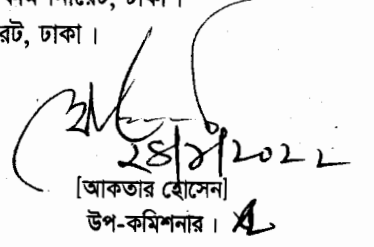 রেট, ঢাকা ।
২৪/৮/২০২২
[আকতার হোসেন]
উপ-কমিশনার ।